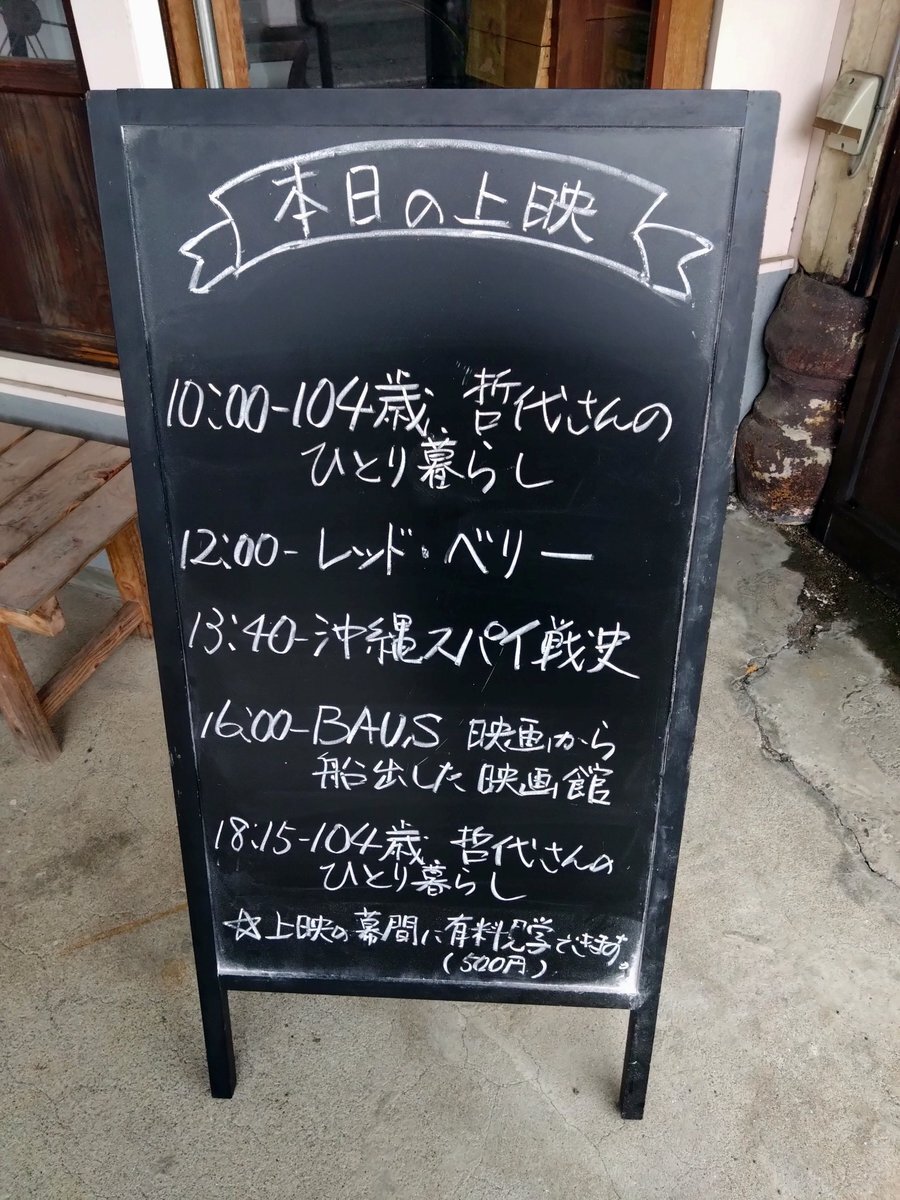 本日の上映
10:00-104歳、哲代さんの
ひとり暮らし
12:00-レッド・ベリー
13:40-沖縄スパイ戦史
16:00-BAUS 映画から
船出した映画館
18:15-104歳、哲代さんの
ひとり暮らし
☆上映の幕間に有料見学できます。
(500円)